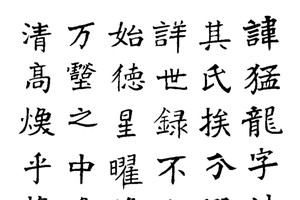 諱猛龍字
其氏族分
詳世録不
始徳星曜
万壑之中
清髙煥乎